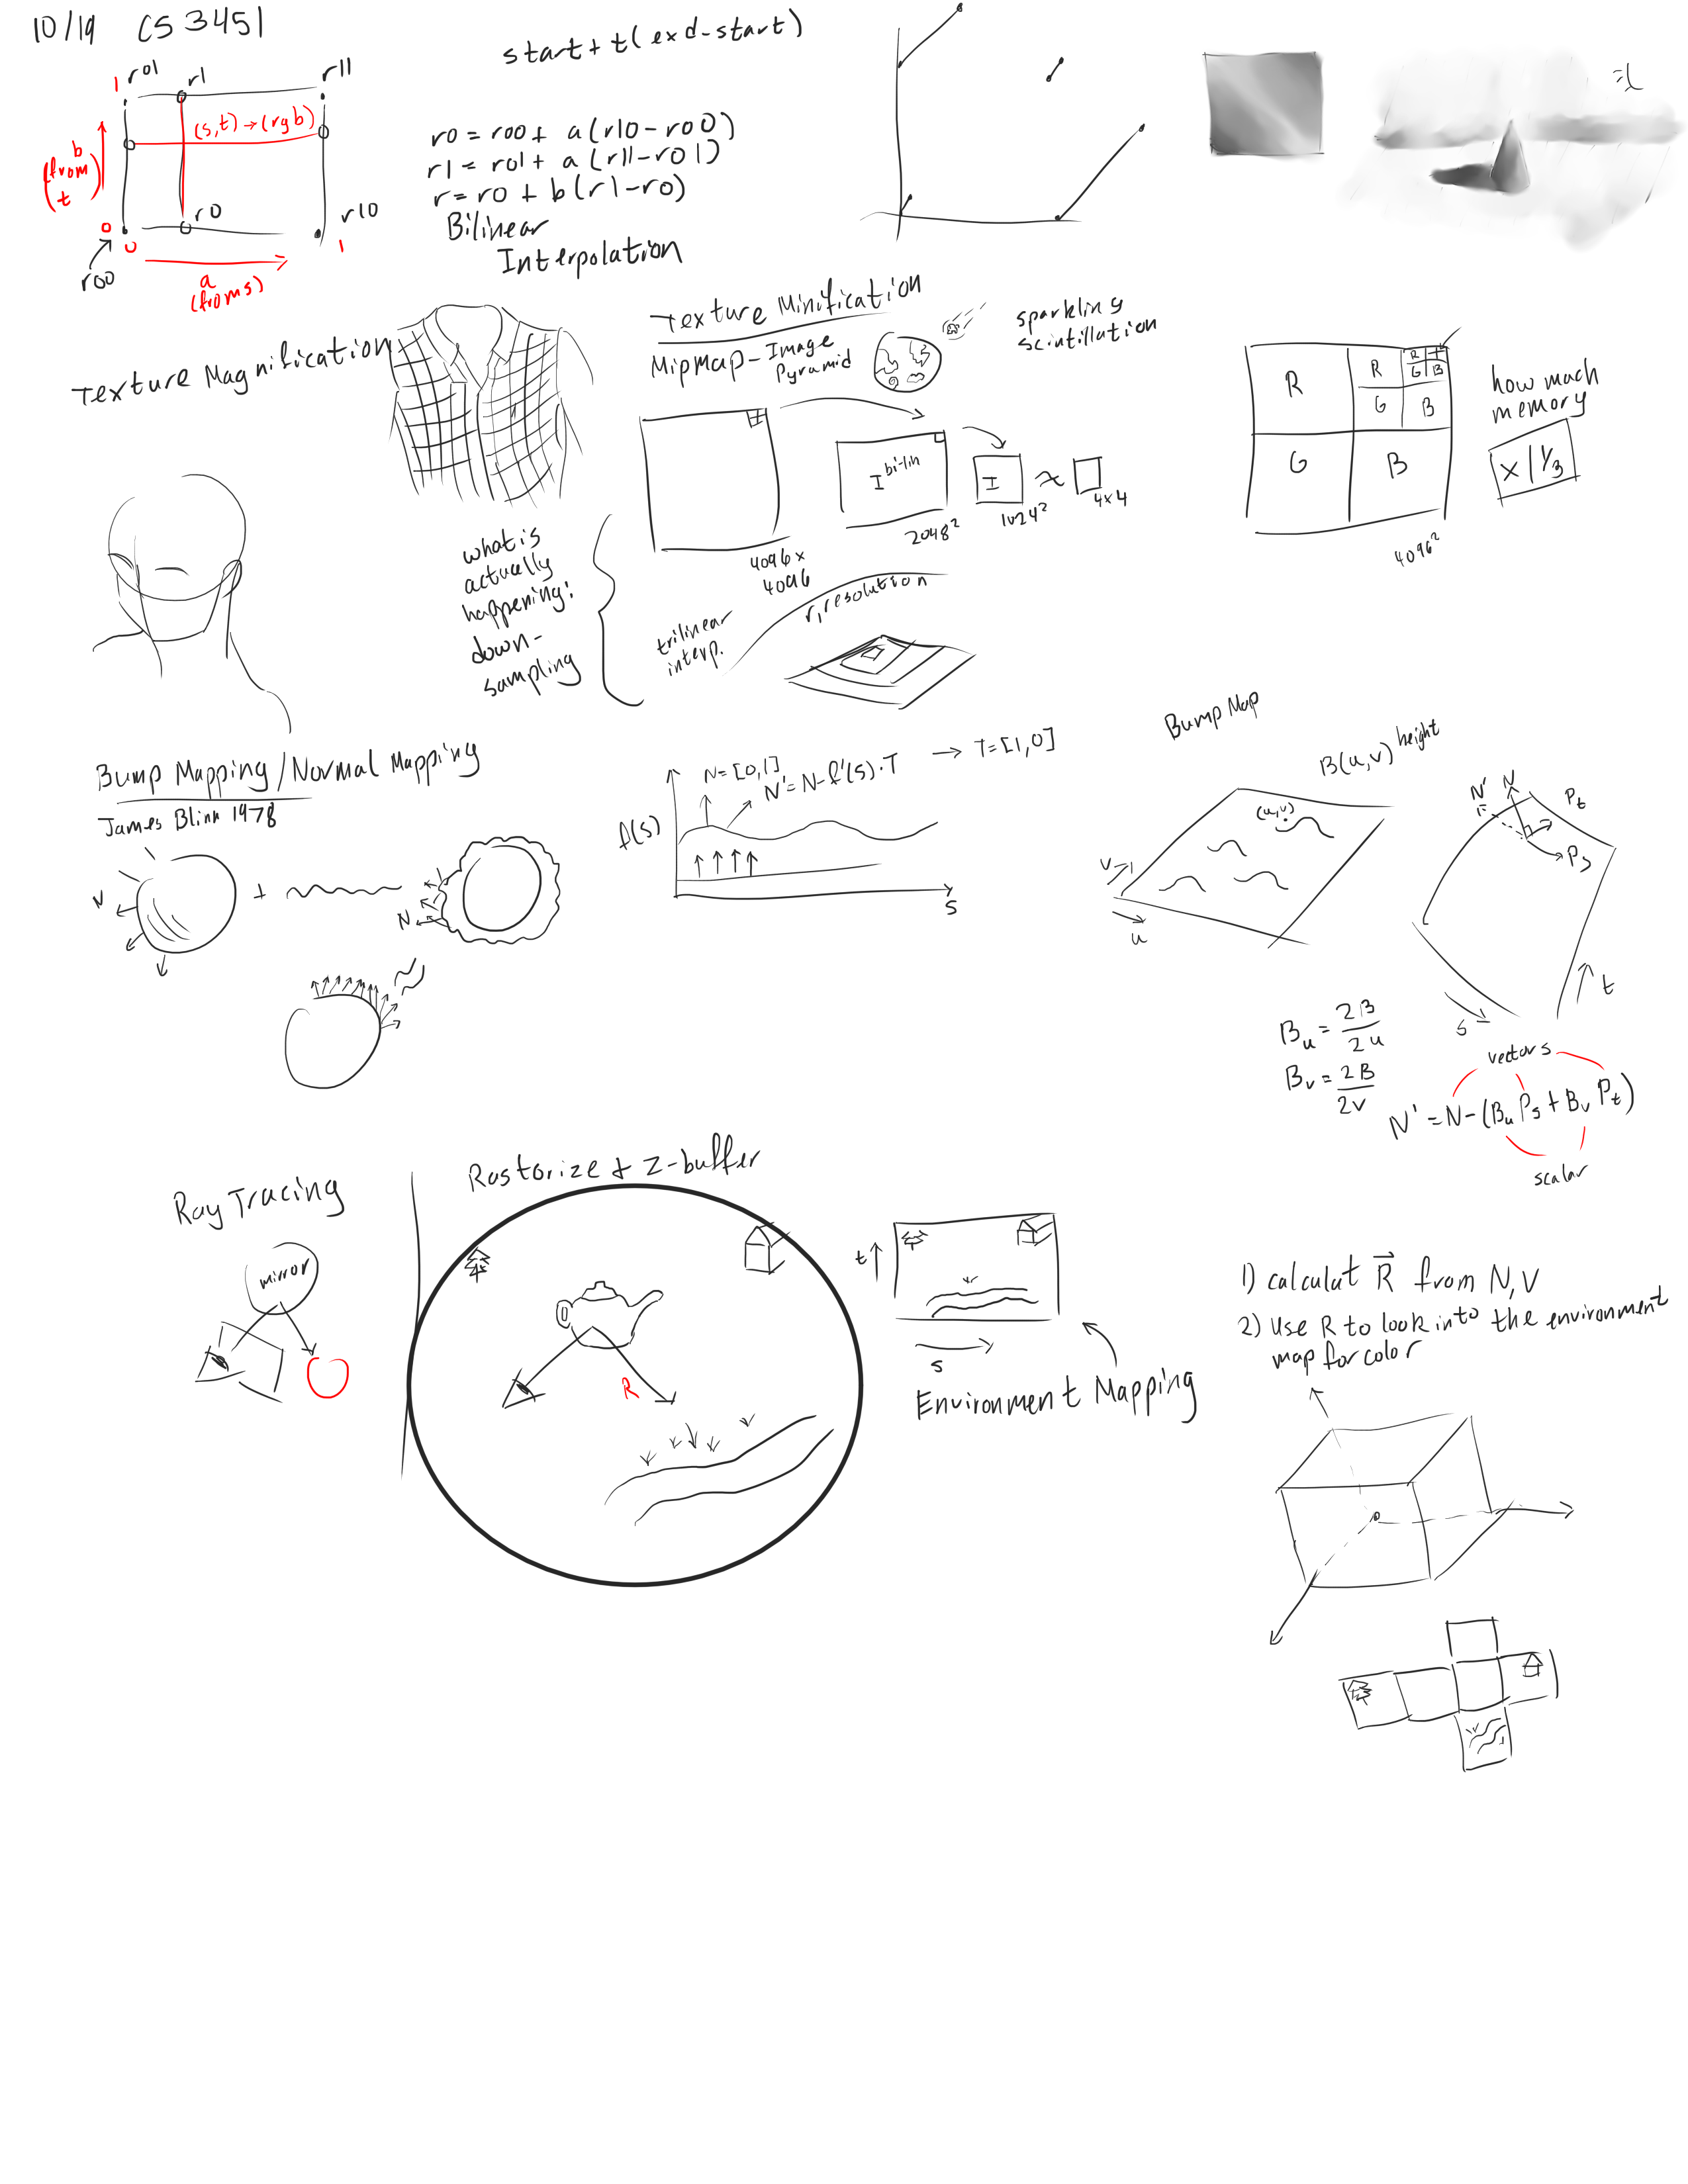 10/19 CS 3451
start + t(exd-start)
1 r01 r1 r11
(s,t) → (rgb)
b
(from
t)
0
0
r0
r10
1
r00
a
(from s)
r0 = r00 + a(r10-r00)
r1 = r01 + a(r11-r01)
r = r0 + b(r1-r0)
Bilinear
Interpolation
Texture Magnification
Texture Minification
Mipmap - Image
Pyramid
sparkling
scintillation
I
I bi-lin
I
4096 x
4096
2048²
1024²
4x4
what is
actually
happening:
down-
sampling
trilinear
interp.
r, resolution
R R R
G B
G B
G B
4096²
how mach
memory
x 1 1/3
Bump Mapping / Normal Mapping
James Blinn 1978
N
+
N
N=[0,1]
N' = N-f'(s)·T → T=[1,0]
f(s)
s
Bump Map
B(u,v) height
(u,v)
v
u
N' N
Pt
Ps
t
s
Bu = 2B
2u
Bv = 2B
2v
vectors
N' = N-(Bu Ps + Bv Pt)
scalar
Ray Tracing
mirror
Rastorize + Z-buffer
R
t
s
Environment Mapping
1) calculat R from N,V
2) Use R to look into the environment
map for color